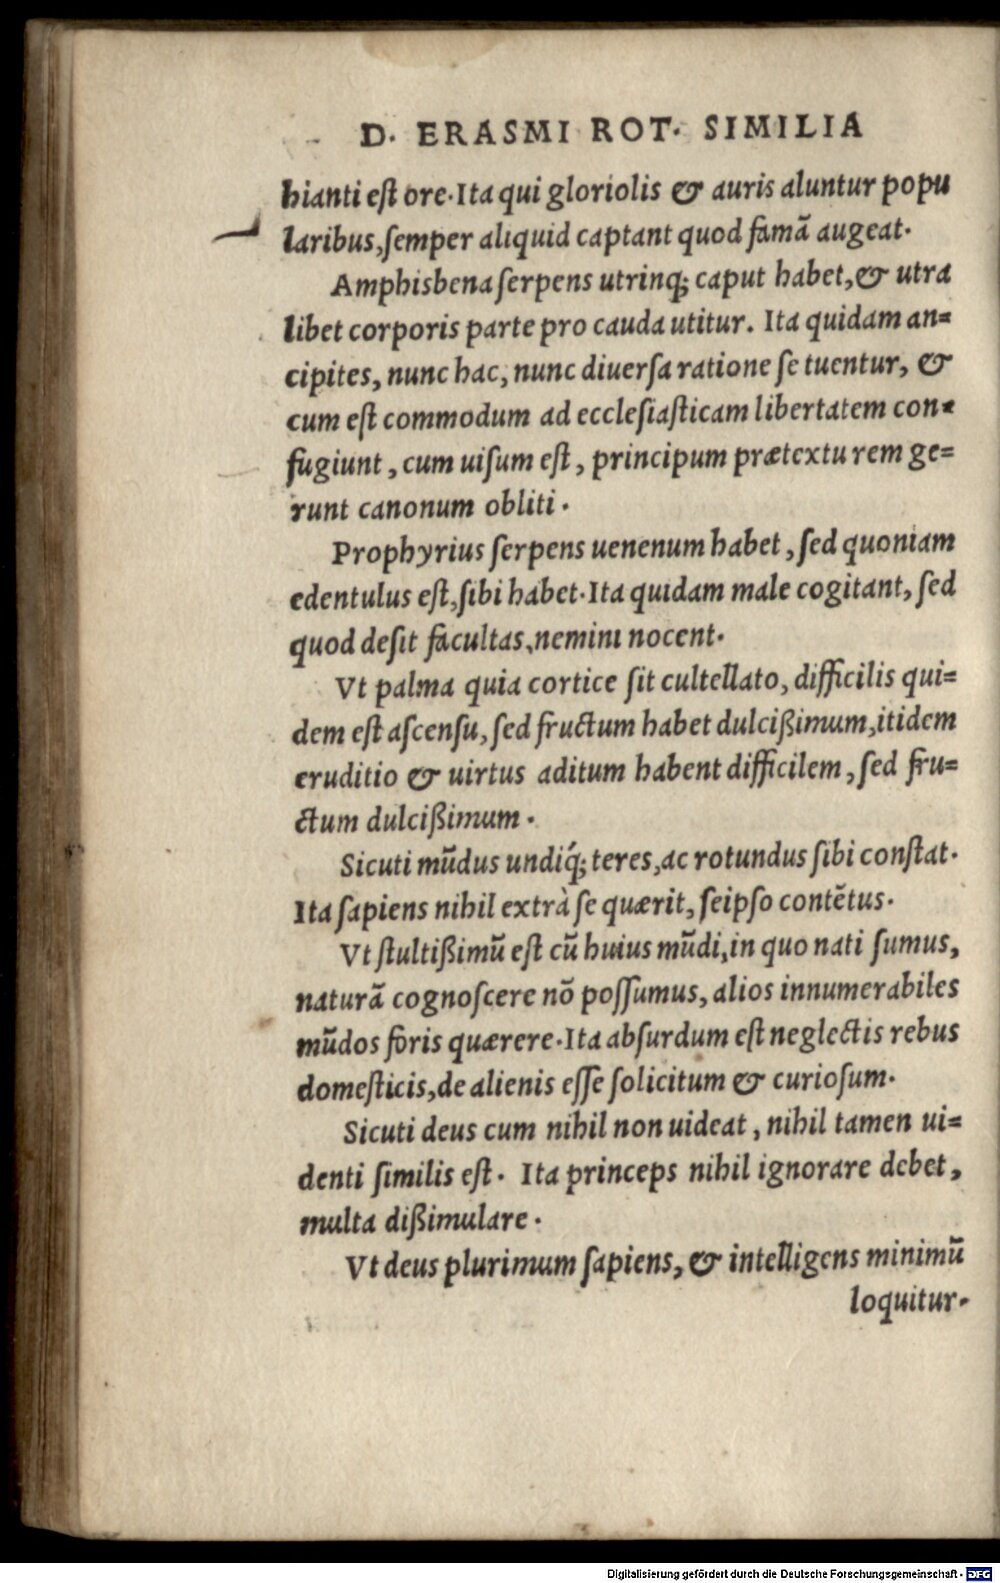 D. ERASMI ROT. SIMILIA
hianti eſt ore. Ita qui gloriolis & auris aluntur popu
laribus, ſemper aliquid captant quod famā augeat.
Amphisbena ſerpens utrinq; caput habet, & utra
libet corporis parte pro cauda utitur. Ita quidam an=
cipites, nunc hac, nunc diuerſa ratione ſe tuentur, &
cum eſt commodum ad eccleſiaſticam libertatem con=
fugiunt, cum uiſum eſt, principum prætextu rem ge=
runt canonum obliti.
Prophyrius ſerpens uenenum habet, ſed quoniam
edentulus eſt, ſibi habet. Ita quidam male cogitant, ſed
quod deſit facultas, nemini nocent.
Vt palma quia cortice ſit cultellato, difficilis qui=
dem eſt aſcenſu, ſed fructum habet dulcißimum, itidem
eruditio & uirtus aditum habent difficilem, ſed fru=
ctum dulcißimum.
Sicuti mūdus undiq́; teres, ac rotundus ſibi conſtat.
Ita ſapiens nihil extrà ſe quærit, ſeipſo contētus.
Vt ſtultißimū eſt cū huius mūdi, in quo nati ſumus,
naturā cognoſcere nō poſſumus, alios innumerabiles
mūdos foris quærere. Ita abſurdum eſt neglectis rebus
domeſticis, de alienis eſſe ſolicitum & curioſum.
Sicuti deus cum nihil non uideat, nihil tamen ui=
denti ſimilis eſt. Ita princeps nihil ignorare debet,
multa dißimulare.
Vt deus plurimum ſapiens, & intelligens minimū
loquitur.
Digitalisierung gefördert durch die Deutsche Forschungsgemeinschaft - DFG